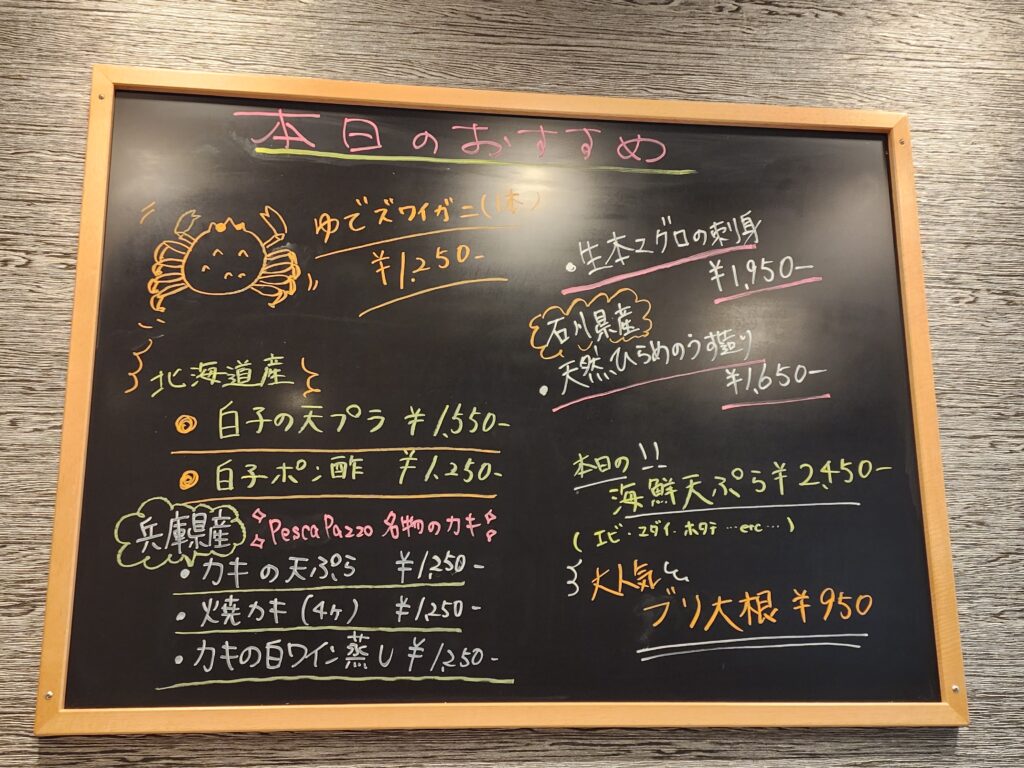 本日のおすすめ
ゆでズワイガニ(1本)
¥1,250-
北海道産
白子の天プラ ¥1,550-
白子ポン酢 ¥1,250-
兵庫県産
Pesca Pazzo 名物のカキ
・カキの天ぷら ¥1,250-
・焼カキ(4ヶ) ¥1,250-
・カキの白ワイン蒸し ¥1,250-
・生本マグロの刺身
¥1,950-
石川県産
・天然ひらめのうす造り
¥1,650-
本日の!!
海鮮天ぷら¥2,450-
(エビ・マダイ・ホタテ…etc…)
大人気
ブリ大根 ¥950